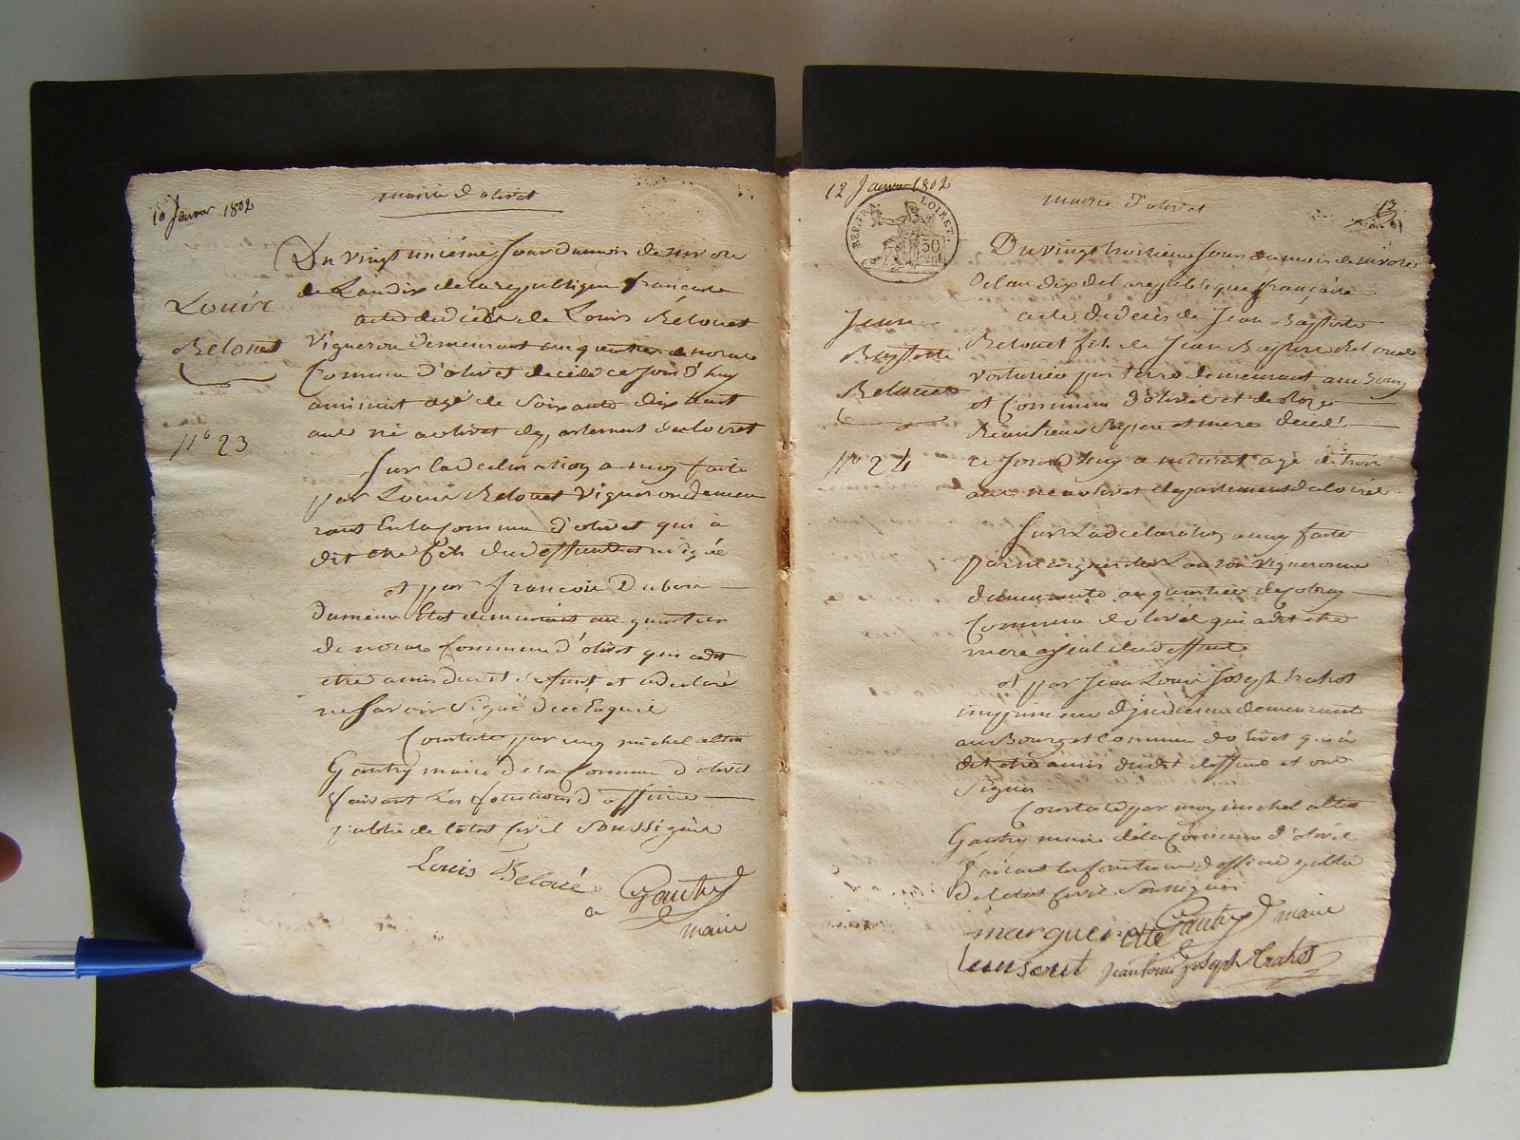 10 Janvier 1802
mairie d'olivet
Du vingt unieme Jour du mois de nivose
de L'an dix de la republique francaise
acte de décès de Louis Belouet
Louis
Belouet
n° 23
Vigneron demeurant au quartier de
Commune d'olivet decédé ce Jour d'huy
a minuit agé de Soixante dix huit
ans né a olivet departement du loiret
Sur la declaration a moy faite
par Louis Belouet Vigneron demeu
rant En la Commune d'olivet qui à
dit etre fils du deffunt
et par francois
demeurant au quartier
de Commune d'olivet qui a dit
etre amis dudit defunt et a declaré
ne Savoir Signé de ce Enquis
Constaté par moy michel
Gautry maire de la Commune d'olivet
faisant Les fonctions d'officier
public de l'état Civil Soussigné
Louis Beloué
Gautry
maire
12 Janvier 1802
mairie d'olivet
REP. FRA. LOIRET.
13
Jean
Baptiste
Belouet
n° 24
Du vingt troisieme Jour du mois de nivose
de l'an dix de la republique française
acte de décès de Jean Baptiste
Belouet fils de Jean Baptiste Belouet
voiturier par terre demeurant au bourg
et Commune d'olivet et de
Ses pere et mere decedé
ce Jourd'huy a minuit agé de trois
ans né a olivet departement du loiret
Sur La declaration a moy faite
par marguerite Vigneronne
demeurante au quartier de
Commune d'olivet qui a dit etre
mere du deffunt
et par Jean Louis Joseph trahot
demeurant
au Bourg et Commune d'olivet qui à
dit etre amis dudit deffunt et ont
Signé
Constaté par moy michel
Gautry maire de la Commune d'olivet
faisant les fonctions d'officier public
de l'état Civil Soussigné
margueritte Gautry maire
Jean louis joseph Trahot